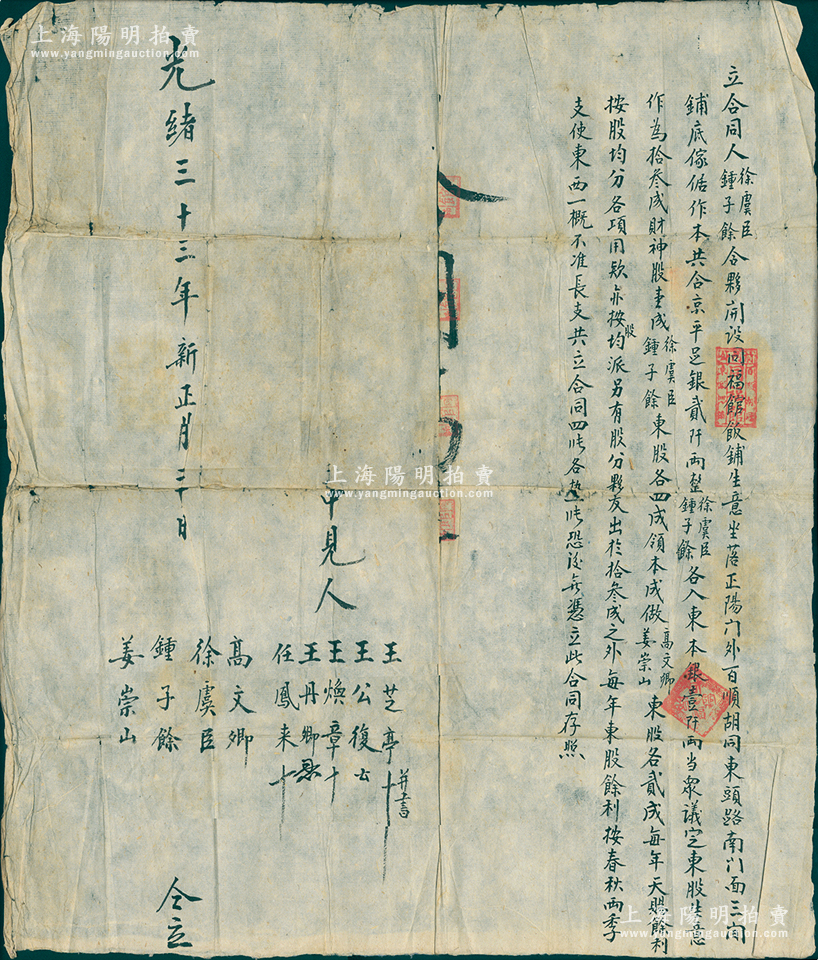 立合同人徐虞臣鍾子餘合夥開設同福館飯鋪生意坐落正陽门外百順胡同東頭路南门面三间
鋪底傢俱作本共合京平足銀貳阡両整徐虞臣鍾子餘各入東本銀壹阡両当衆議定東股生意
作為拾叁成財神股壹成徐虞臣鍾子餘東股各四成領本成做高文卿姜崇山東股各貳成每年天賜餘利
按股均分各項用欵亦按股均派另有股分夥友出於拾叁成之外每年東股餘利按春秋両季
支使東西一概不准長支共立合同四帋各執一帋恐後無憑立此合同存照
合同
中見人
王芝亭十并書
王公復
王煥章十
王丹卿
任鳳来十
高文卿
徐虞臣
鍾子餘
姜崇山
仝立
光緒三十三年新正月三十日
上海陽明拍賣
www.yangmingauction.com
上海陽明拍賣
www.yangmingauction.com
上海陽明拍賣
www.yangmingauction.com
上海陽明拍賣
www.yangmingauction.com